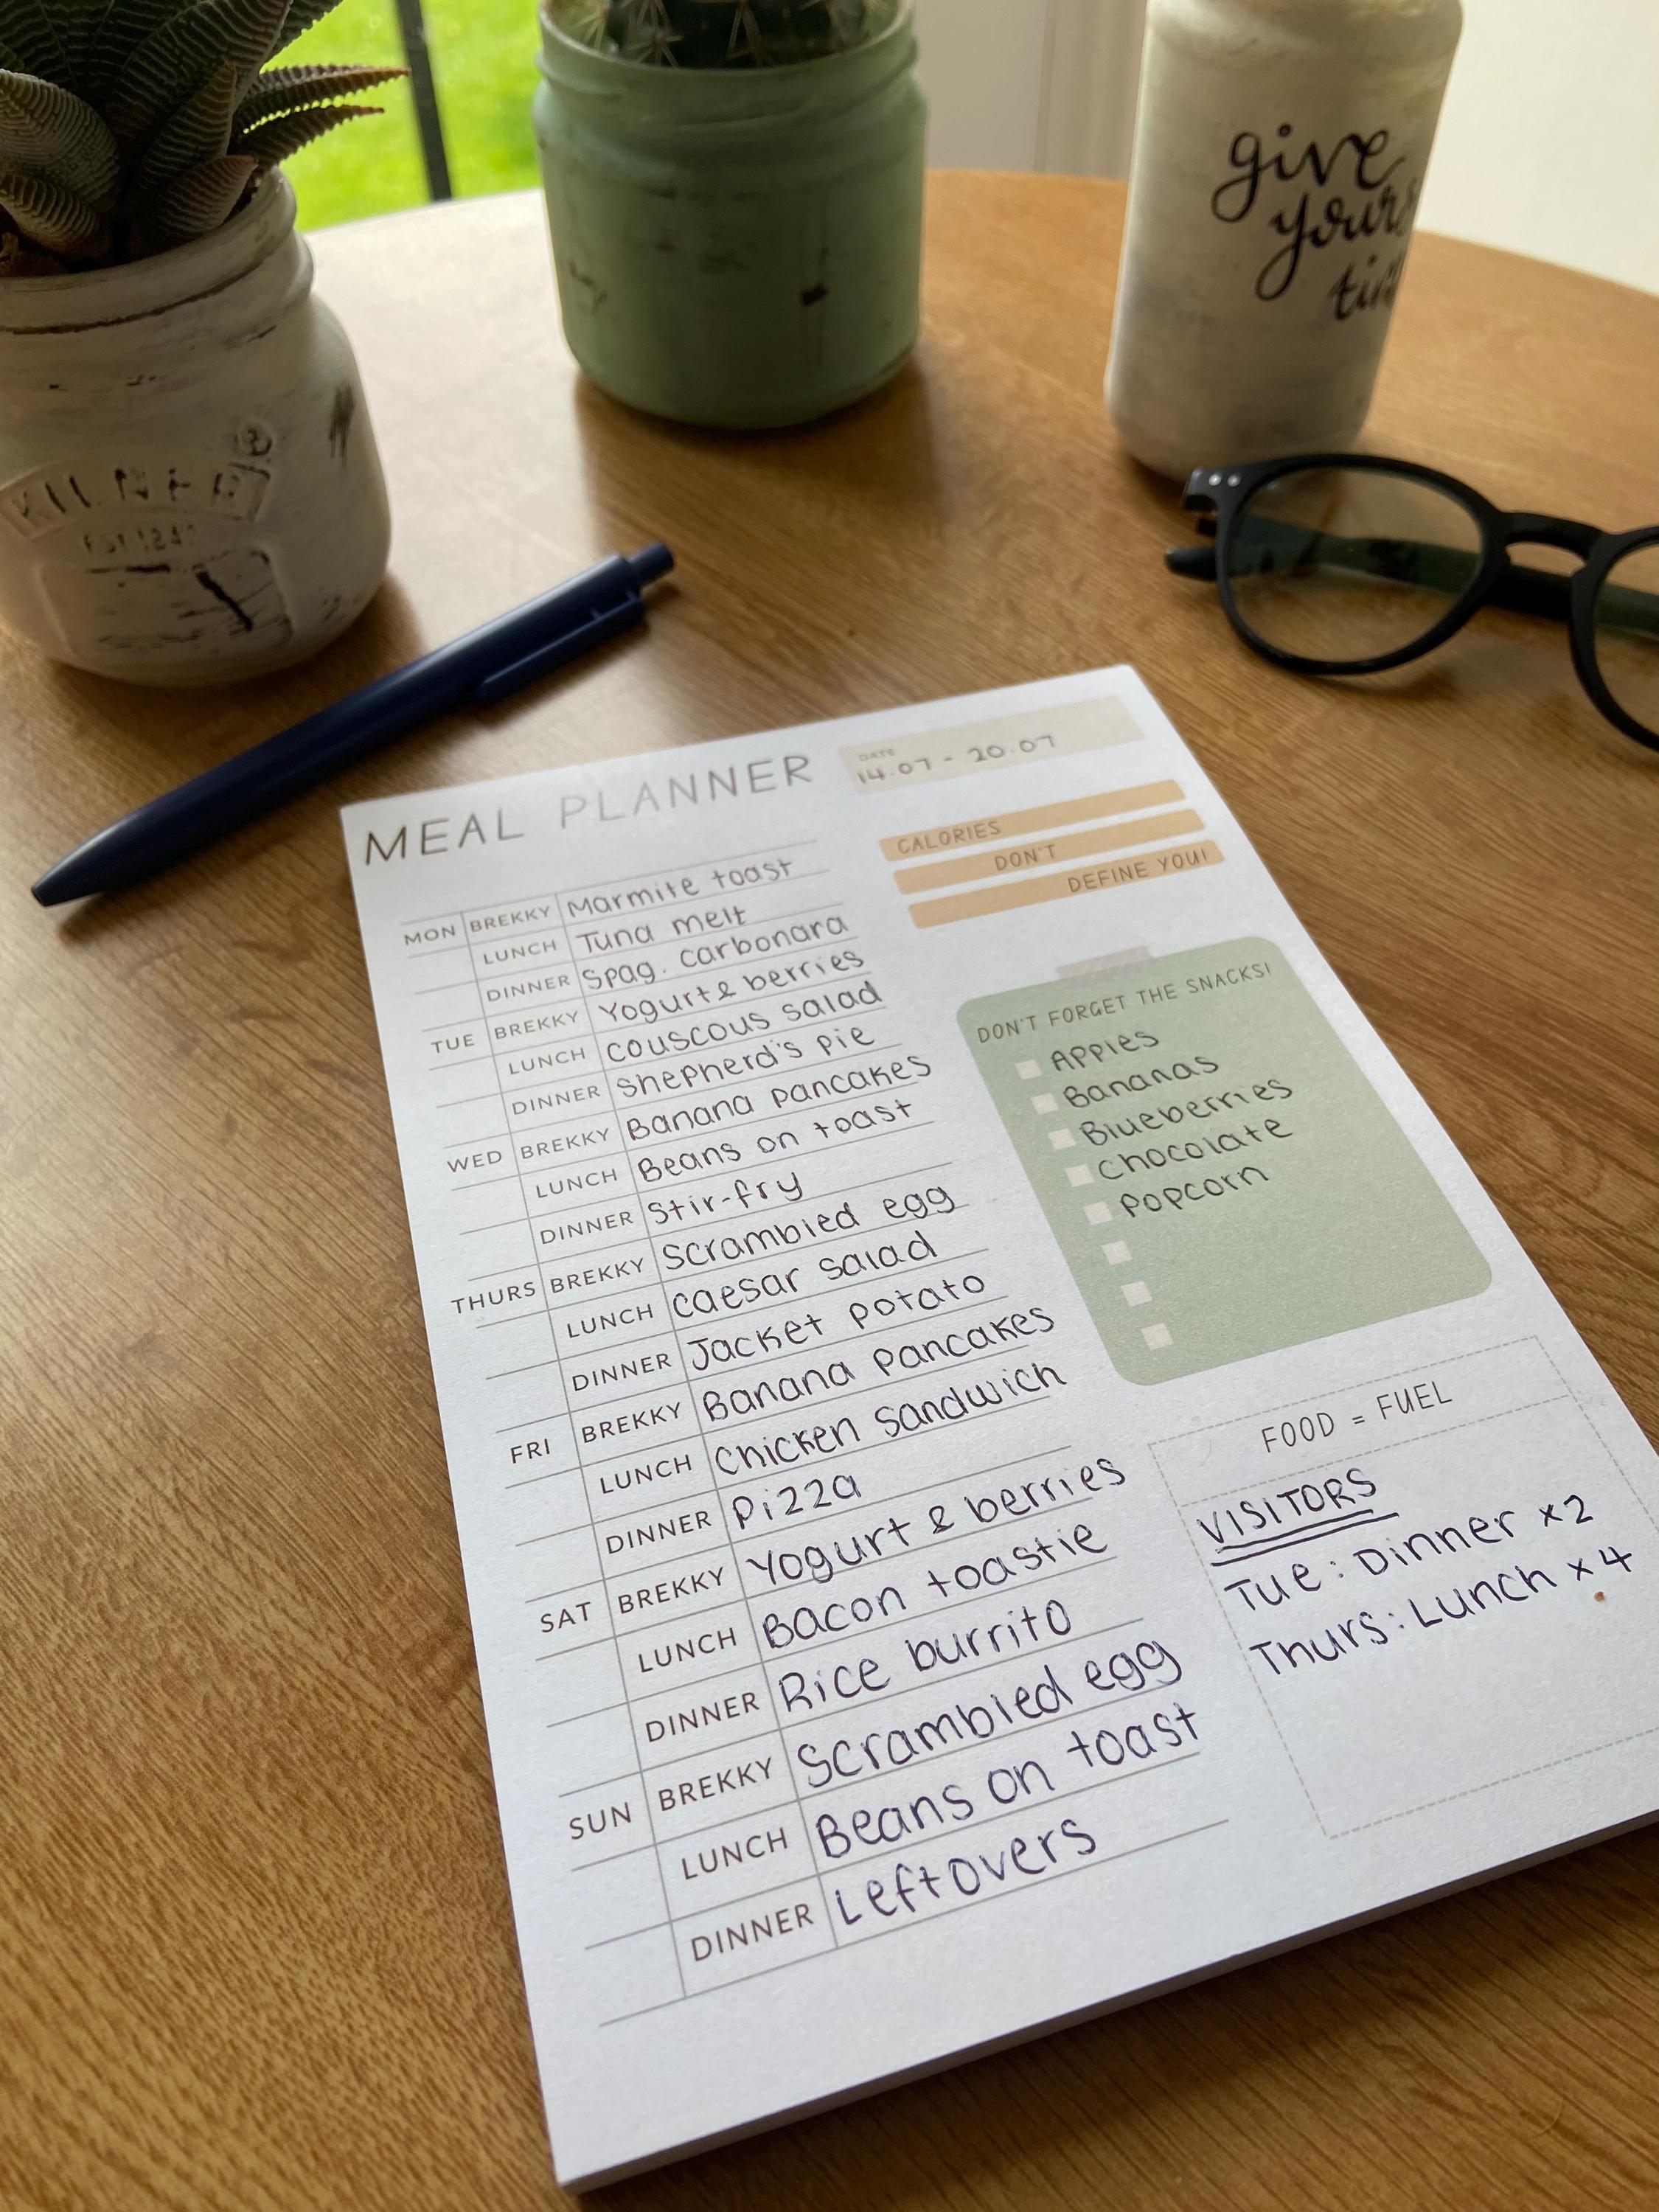 KILNER
give
yours
MEAL PLANNER
DATE
14.07 - 20.07
CALORIES
DON'T
DEFINE YOU!
MON BREKKY Marmite toast
LUNCH Tuna melt
DINNER Spag. carbonara
TUE BREKKY Yogurt & berries
LUNCH couscous salad
DINNER Shepherd's pie
WED BREKKY Banana pancakes
LUNCH Beans on toast
DINNER Stir-fry
THURS BREKKY Scrambled egg
LUNCH Caesar salad
DINNER Jacket potato
FRI BREKKY Banana pancakes
LUNCH Chicken sandwich
DINNER Pizza
SAT BREKKY Yogurt & berries
LUNCH Bacon toastie
DINNER Rice burrito
SUN BREKKY Scrambled egg
LUNCH Beans on toast
DINNER Leftovers
DON'T FORGET THE SNACKS!
Apples
Bananas
Blueberries
Chocolate
Popcorn
FOOD = FUEL
VISITORS
Tue: Dinner x2
Thurs: Lunch x4